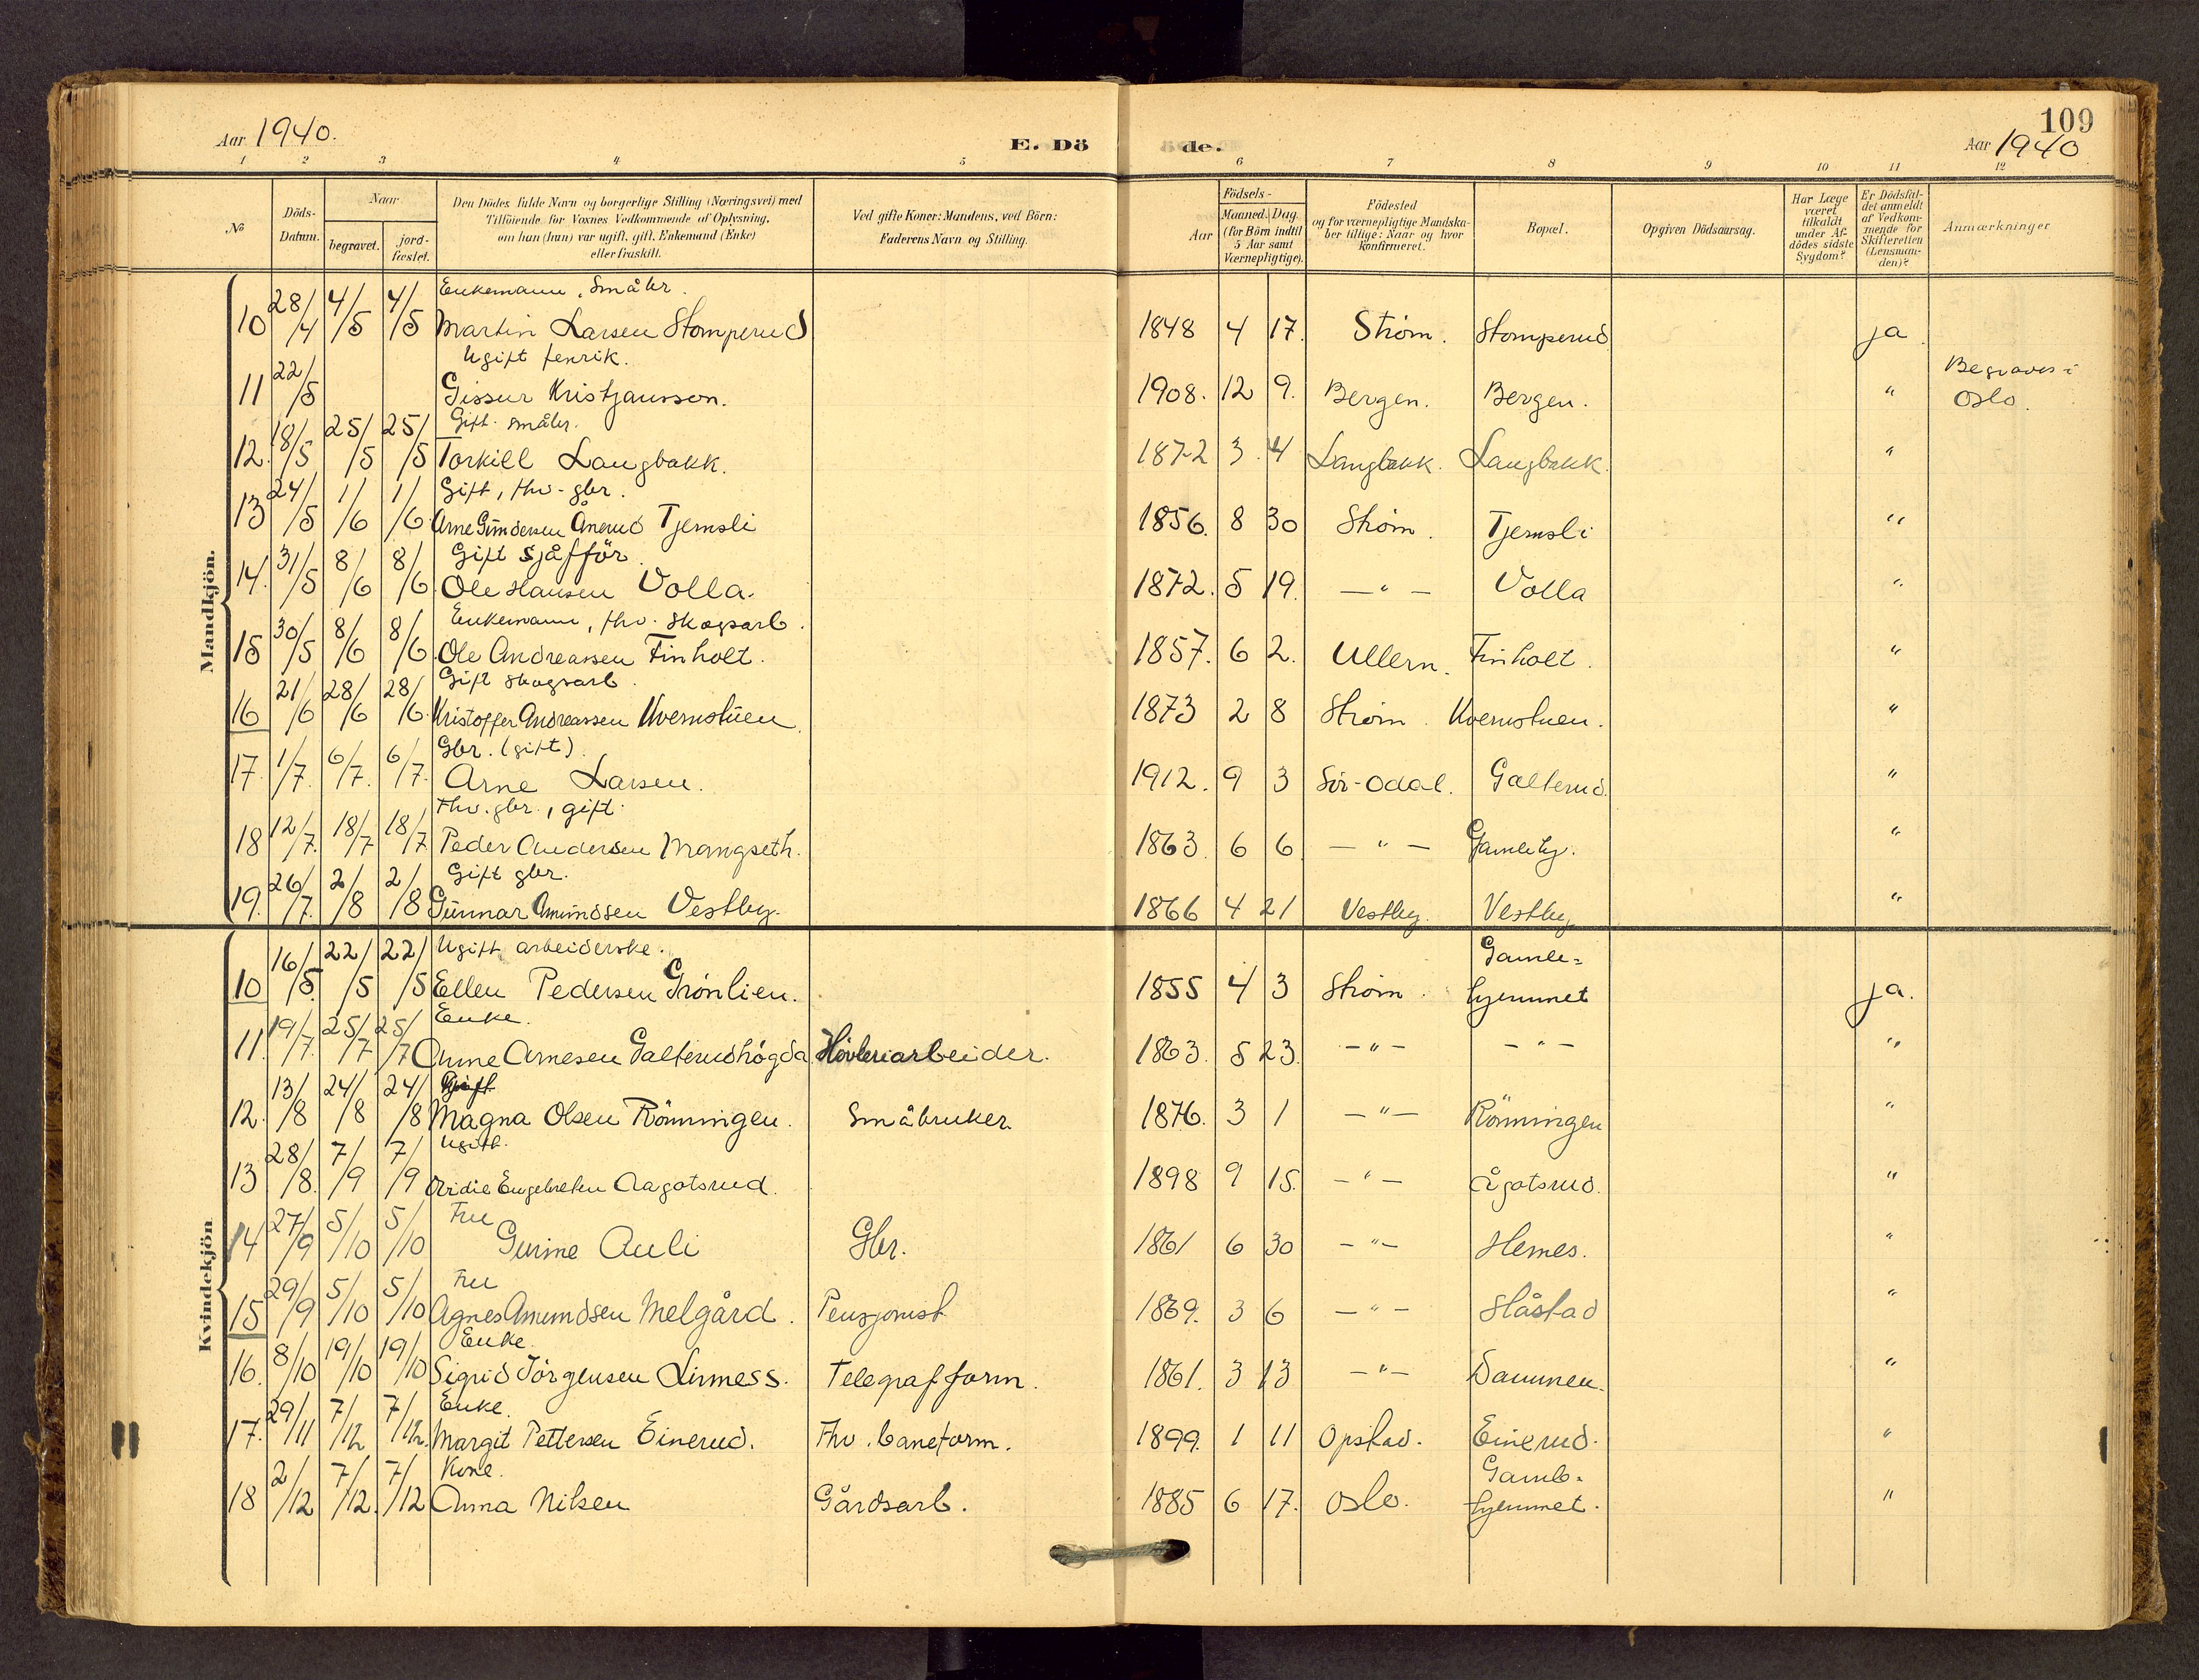 Aar 1940.
E. Dö
de.
109
Aar 1940
1 2 3 4 5 6 7 8 9 10 11 12
No
Döds-Datum.
Naar
begravet.
jord-fæstet.
Den Dödes fulde Navn og borgerlige Stilling (Næringsvei) med
Tilföiende for Voxnes Vedkommende af Oplysning,
om han (hun) var ugift, gift, Enkemand (Enke)
eller fraskilt.
Ved gifte Koner: Mandens, ved Börn:
Faderens Navn og Stilling.
Aar
Födsels-
Maaned. Dag.
(for Börn indtil
5 Aar samt
Værnepligtige).
Födested
og for værnepligtige Mandska-
ber tillige: Naar og hvor
Konfirmeret.
Bopæl.
Opgiven Dödsaarsag.
Har Læge
været
tilkaldt
under Af-
dödes sidste
Sygdom?
Er Dödsfal-
det anmeldt
af Vedkom-
mende for
Skifteretten
(Lensman-
den)?
Anmærkninger
Mandkjön.
Enkemann, Småbr.
10 28/4 4/5 4/5 Martin Larsen Stomperud 1848 4 17. Strøm. Stomperud ja
Ugift fenrik.
11 22/5 Gissur Kristjansson. 1908. 12 9. Bergen. Bergen. " Begraves i Oslo.
Gift småbr.
12. 18/5 25/5 25/5 Torkill Langbakk. 1872 3 4 Langbakk. Langbakk. "
Gift, fhv. gbr.
13 24/5 1/6 1/6 Arne Gundersen Ånerud Tjernsli 1856. 8 30 Strøm. Tjernsli "
Gift sjåffør.
14. 31/5 8/6 8/6 Ole Hansen Volla. 1872. 5 19. — " — Volla "
Enkemann, fhv. skogsarb.
15 30/5 8/6 8/6 Ole Andreassen Finholt. 1857. 6 2. Ullern. Finholt. "
Gift skogsarb.
16 21/6 28/6 28/6 Kristoffer Andreassen Kvernstuen 1873 2 8 Strøm. Kvernstuen. "
Gbr. (gift).
17. 1/7. 6/7. 6/7. Arne Larsen. 1912. 9 3 Sør-Odal. Galterud. "
Fhv. gbr., gift.
18 12/7. 18/7 18/7 Peder Andersen Mangseth. 1863. 6 6 — " — Gamlehj. "
Gift gbr.
19. 26/7. 2/8 2/8 Gunnar Amundsen Vestby. 1866 4 21 Vestby. Vestby "
Kvindekjön
Ugift arbeiderske.
10 16/5. 22/5 22/5 Ellen Pedersen Grönlien. 1855 4 3 Strøm. Gamle=hjemmet ja.
Enke.
11. 19/7. 25/7 25/7 Anne Arnesen Galterudhøgda Høvleriarbeider. 1863. 5 23. — " — — " — "
Gift
12. 13/8 24/8 24/8 Magna Olsen Rönningen. Småbruker. 1876. 3 1 — " — Rönningen "
Ugift.
13 28/8. 7/9 7/9 Ovidie Engebretsen Aagotsrud. 1898 9 15. — " — Ågotsrud. "
Fru
14 27/9 5/10 5/10 Gurine Auli Gbr. 1861 6 30 — " — Hernes. "
Fru
15 29/9 5/10 5/10 Agnes Amundsen Melgård. Pensjonist 1869. 3 6 — " — Håstad "
Enke.
16. 8/10 19/10 19/10 Sigrid Jörgensen Linness. Telegrafform. 1861. 3 13 — " — Dammen. "
Enke.
17. 29/11 7/12 7/12. Margit Pettersen Einerud. Fhv. baneform. 1899. 1 11 Opstad. Einerud. "
Kone.
18 2/12 7/12. 7/12 Anna Nilsen Gårdsarb. 1885 6 17. Oslo. Gamle=hjemmet. "